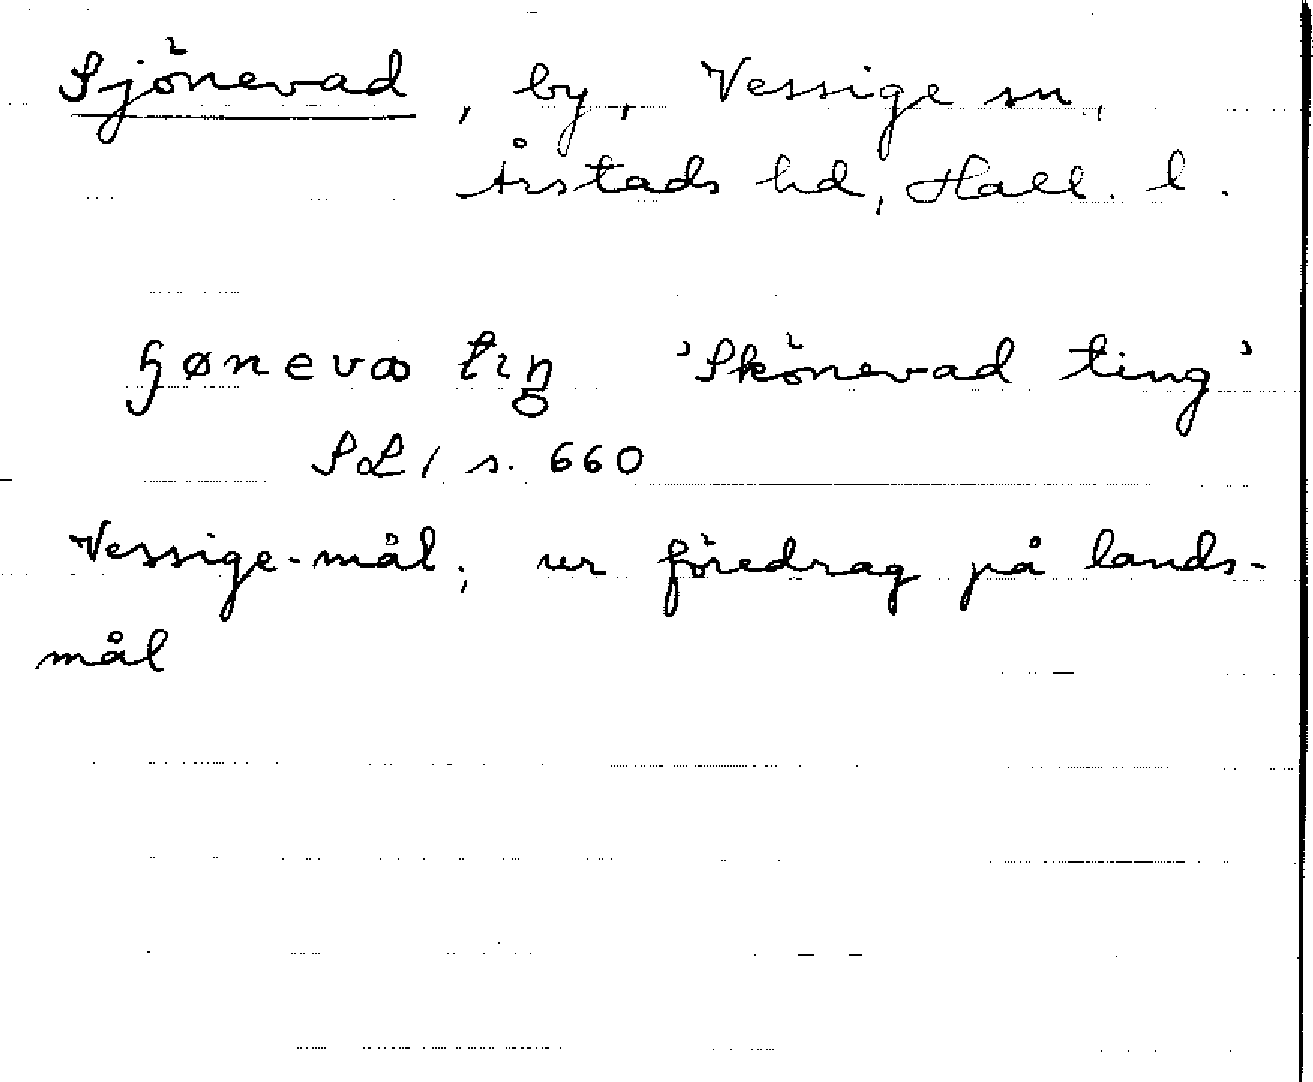 Sjönevad, by, Vessige sn,
Årstads hd, Hall. l.
ɧønevaꝏ tıŋ 'Skönevad ting'
SL 1 s. 660
Vessige-mål; ur föredrag på lands-
mål